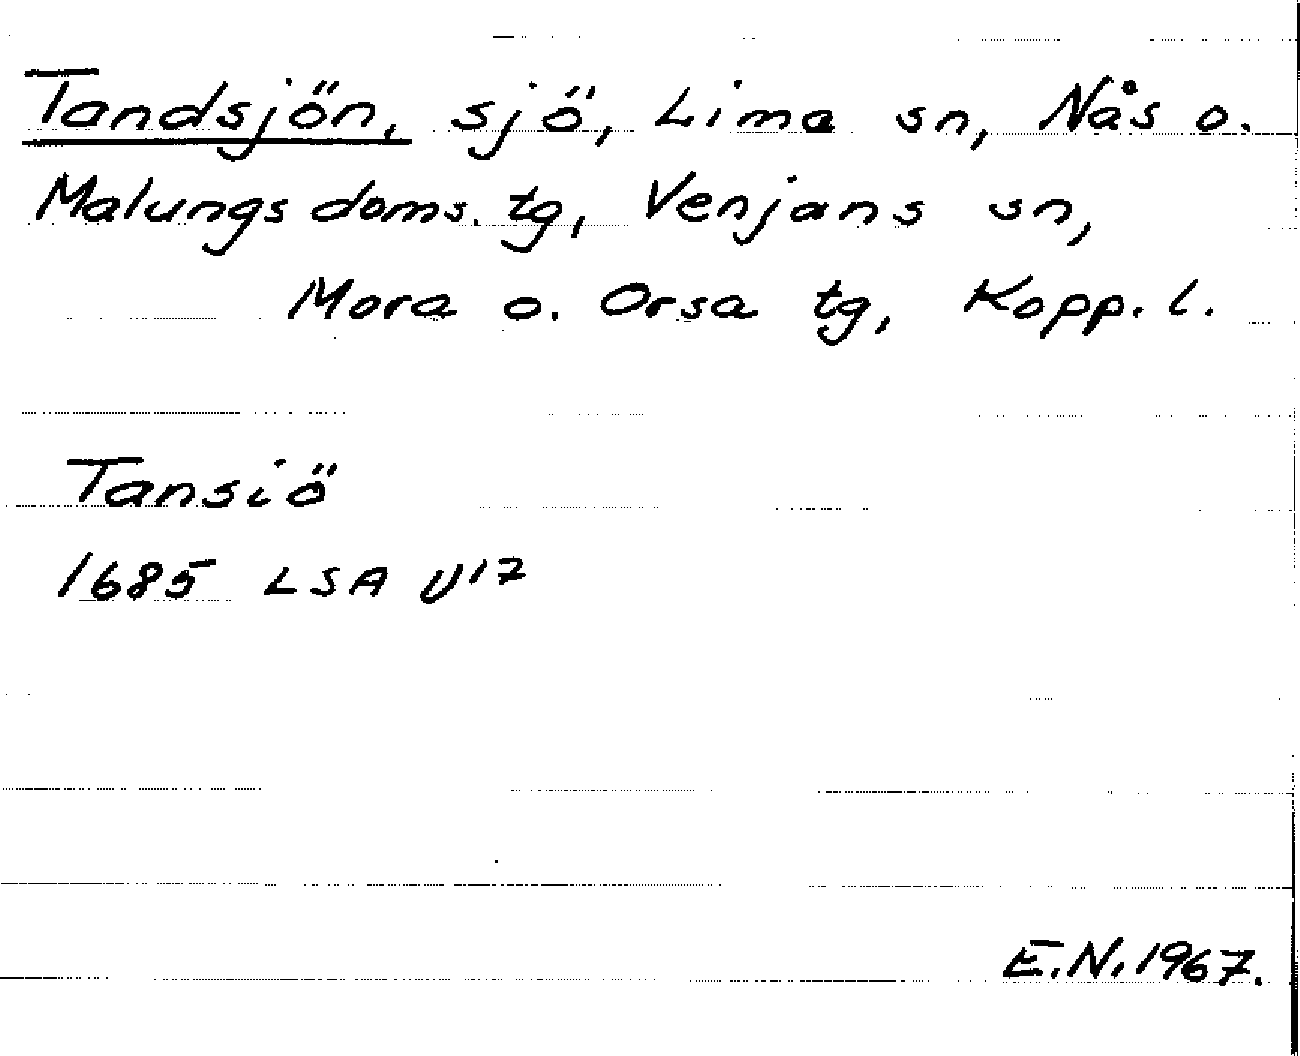 Tandsjön, sjö, Lima sn, Nås o.
Malungs doms. tg, Venjans sn,
Mora o. Orsa tg, Kopp. l.
Tansiö
1685 LSA U17
E.N. 1967.